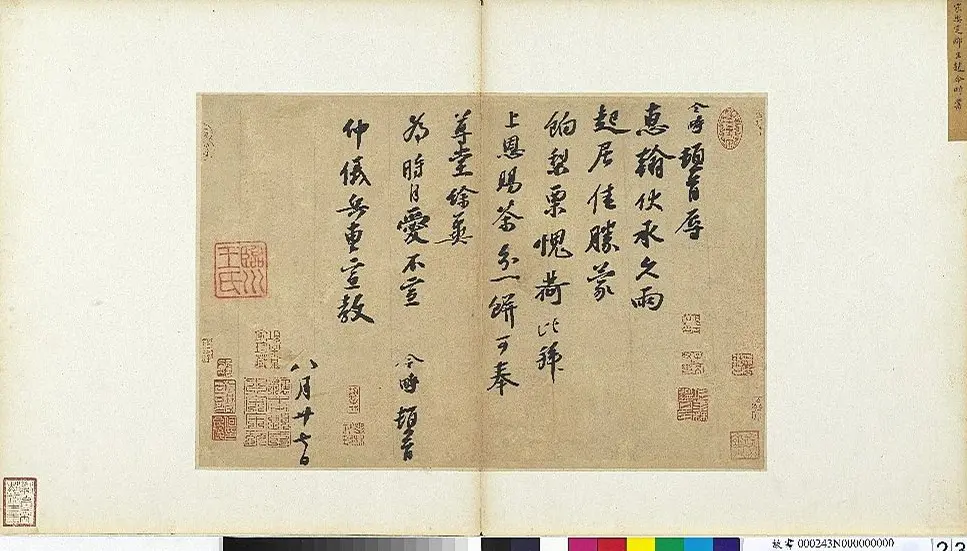 宋安定郡王趙令畤書
令畤頓首辱
惠翰伏承久雨
起居佳勝蒙
餉梨栗愧荷比拜
上恩賜茶分一餅可奉
尊堂餘冀
為時自愛不宣 令畤頓首
仲儀兵曹宣教
八月廿七日
臨川王氏
故書 000243N000000000